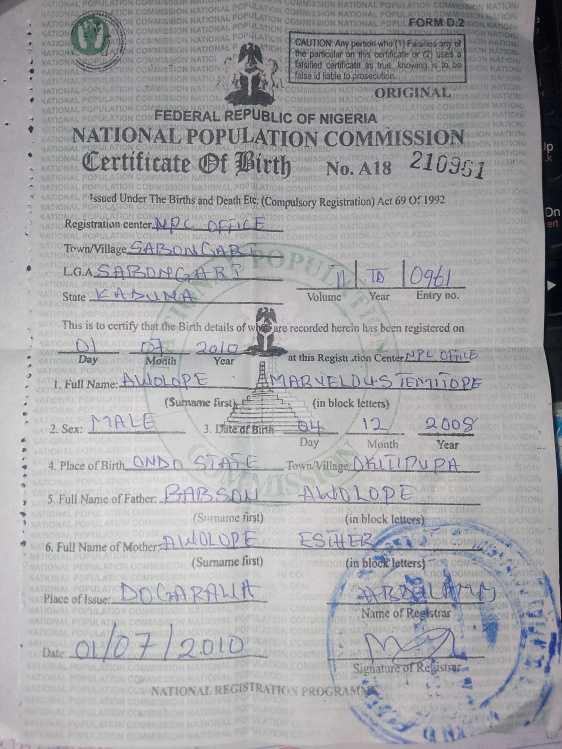 FORM D.2
CAUTION: Any person who (1) Falsifies any of
the particular on this certificate or (2) uses a
falsified certificate as true, knowing is to be
false id liable to prosecution.
ORIGINAL
FEDERAL REPUBLIC OF NIGERIA
NATIONAL POPULATION COMMISSION
Certificate Of Birth No. A18 210961
Issued Under The Births and Death Etc. (Compulsory Registration) Act 69 Of 1992
Registration center NPC OFFICE
Town/Village SABON GARI
L.G.A SABONGARI 11 TD 0961
State KADUNA Volume Year Entry no.
This is to certify that the Birth details of who are recorded herein has been registered on
01 07 2010 at this Registration Center NPC OFFICE
Day Month Year
1. Full Name: AWOLOPE MARVELOUS TEMITOPE
(Surname first) (in block letters)
2. Sex: MALE 3. Date of Birth 04 12 2008
Day Month Year
4. Place of Birth ONDO STATE Town/Village OKITIPUPA
5. Full Name of Father: BABSON AWOLOPE
(Surname first) (in block letters)
6. Full Name of Mother: AWOLOPE ESTHER
(Surname first) (in block letters)
Place of Issue: DOGARAWA
Name of Registrar
Date 01/07/2010
Signature of Registrar
NATIONAL REGISTRATION PROGRAMME